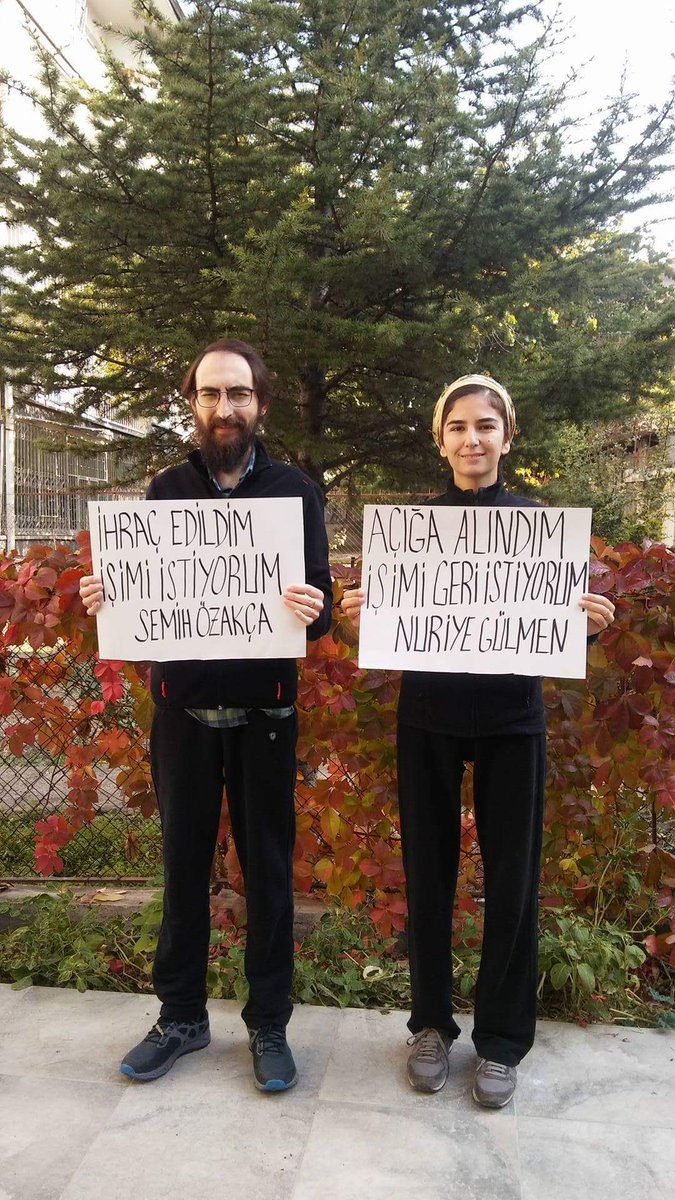 İHRAÇ EDİLDİM
İŞİMİ İSTİYORUM
SEMİH ÖZAKÇA
AÇIĞA ALINDIM
İŞİMİ GERİ İSTİYORUM
NURİYE GÜLMEN